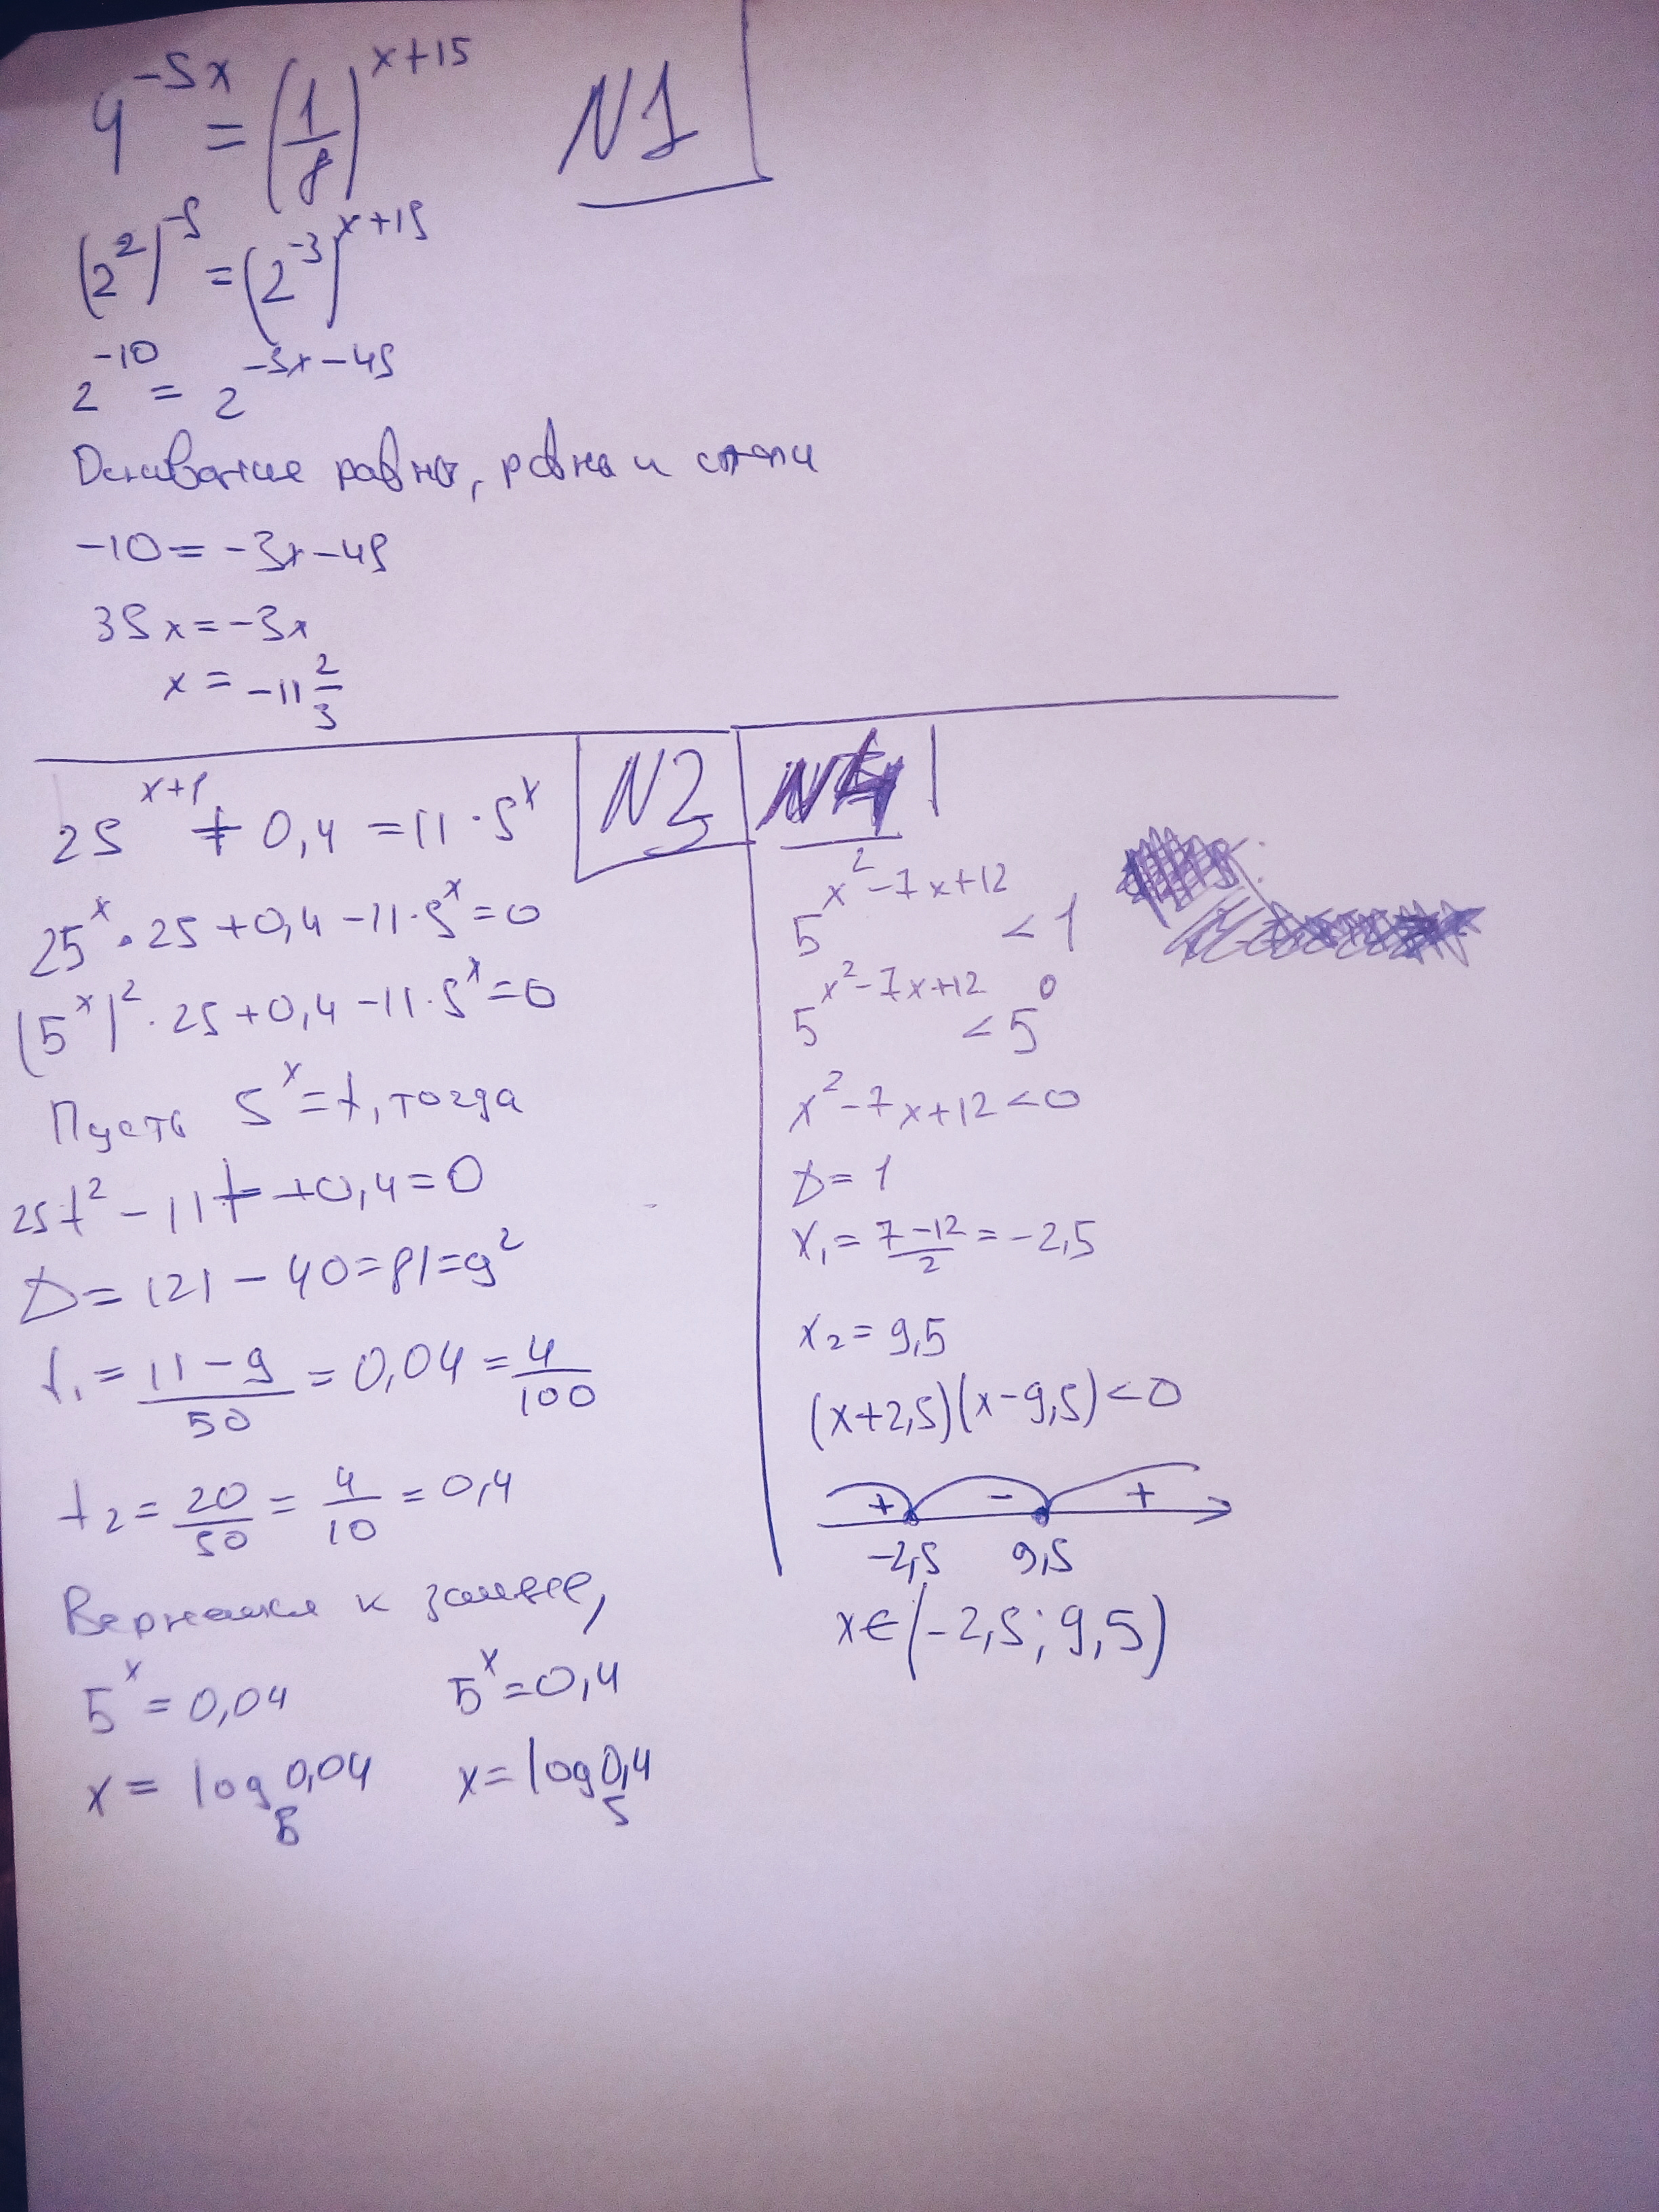 4^{-5x} = (1/8)^{x+15} N1
(2^2)^{-5} = (2^{-3})^{x+15}
2^{-10} = 2^{-3x-45}
равны, равны и
-10 = -3x-45
35x = -3x
x = -11 2/3
25^{x+1} + 0,4 = 11·5^x N2
25^x · 25 + 0,4 - 11·5^x = 0
(5^x)^2 · 25 + 0,4 - 11·5^x = 0
Пусть 5^x = t, тогда
25t^2 - 11t + 0,4 = 0
D = 121 - 40 = 81 = 9^2
t_1 = (11-9)/50 = 0,04 = 4/100
t_2 = 20/50 = 4/10 = 0,4
Вернемся к замене,
5^x = 0,04 5^x = 0,4
x = log_5 0,04 x = log_5 0,4
N4
5^{x^2-7x+12} < 1
5^{x^2-7x+12} < 5^0
x^2-7x+12 < 0
D = 1
x_1 = (7-12)/2 = -2,5
x_2 = 9,5
(x+2,5)(x-9,5) < 0
+ - +
-2,5 9,5
x∈(-2,5; 9,5)